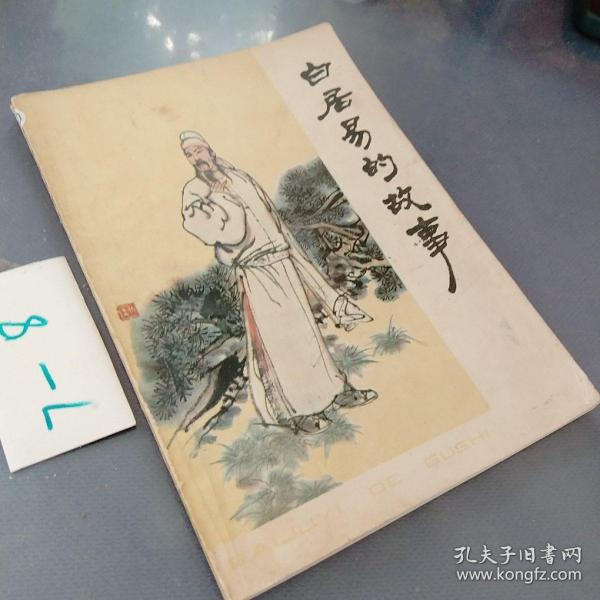 白居易的故事
BAIJUYI DE GUSHI
8-L
孔夫子旧书网
www.kongfz.com